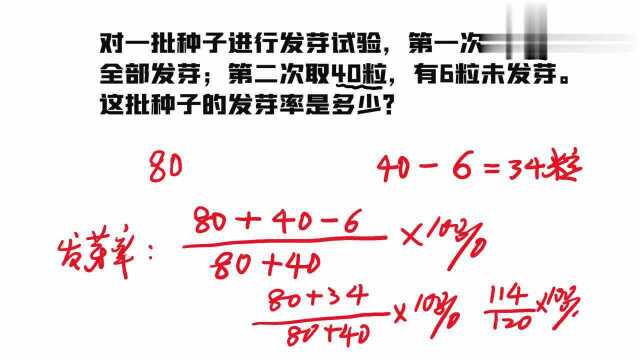 对一批种子进行发芽试验，第一次
全部发芽；第二次取40粒，有6粒未发芽。
这批种子的发芽率是多少？
80 40-6=34粒
发芽率： 80+40-6/80+40 ×100%
80+34/80+40 ×100% 114/120 ×100%